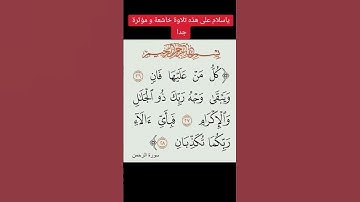 ياسلام على هذه تلاوة خاشعة و مؤثرة
جدا
بسم الله الرحمن الرحيم
﴿ كُلُّ مَنْ عَلَيْهَا فَانٍ ٢٦
وَيَبْقَىٰ وَجْهُ رَبِّكَ ذُو الْجَلَالِ
وَالْإِكْرَامِ ٢٧ فَبِأَيِّ ءَالَاءِ
رَبِّكُمَا تُكَذِّبَانِ ٢٨
سورة الرحمن